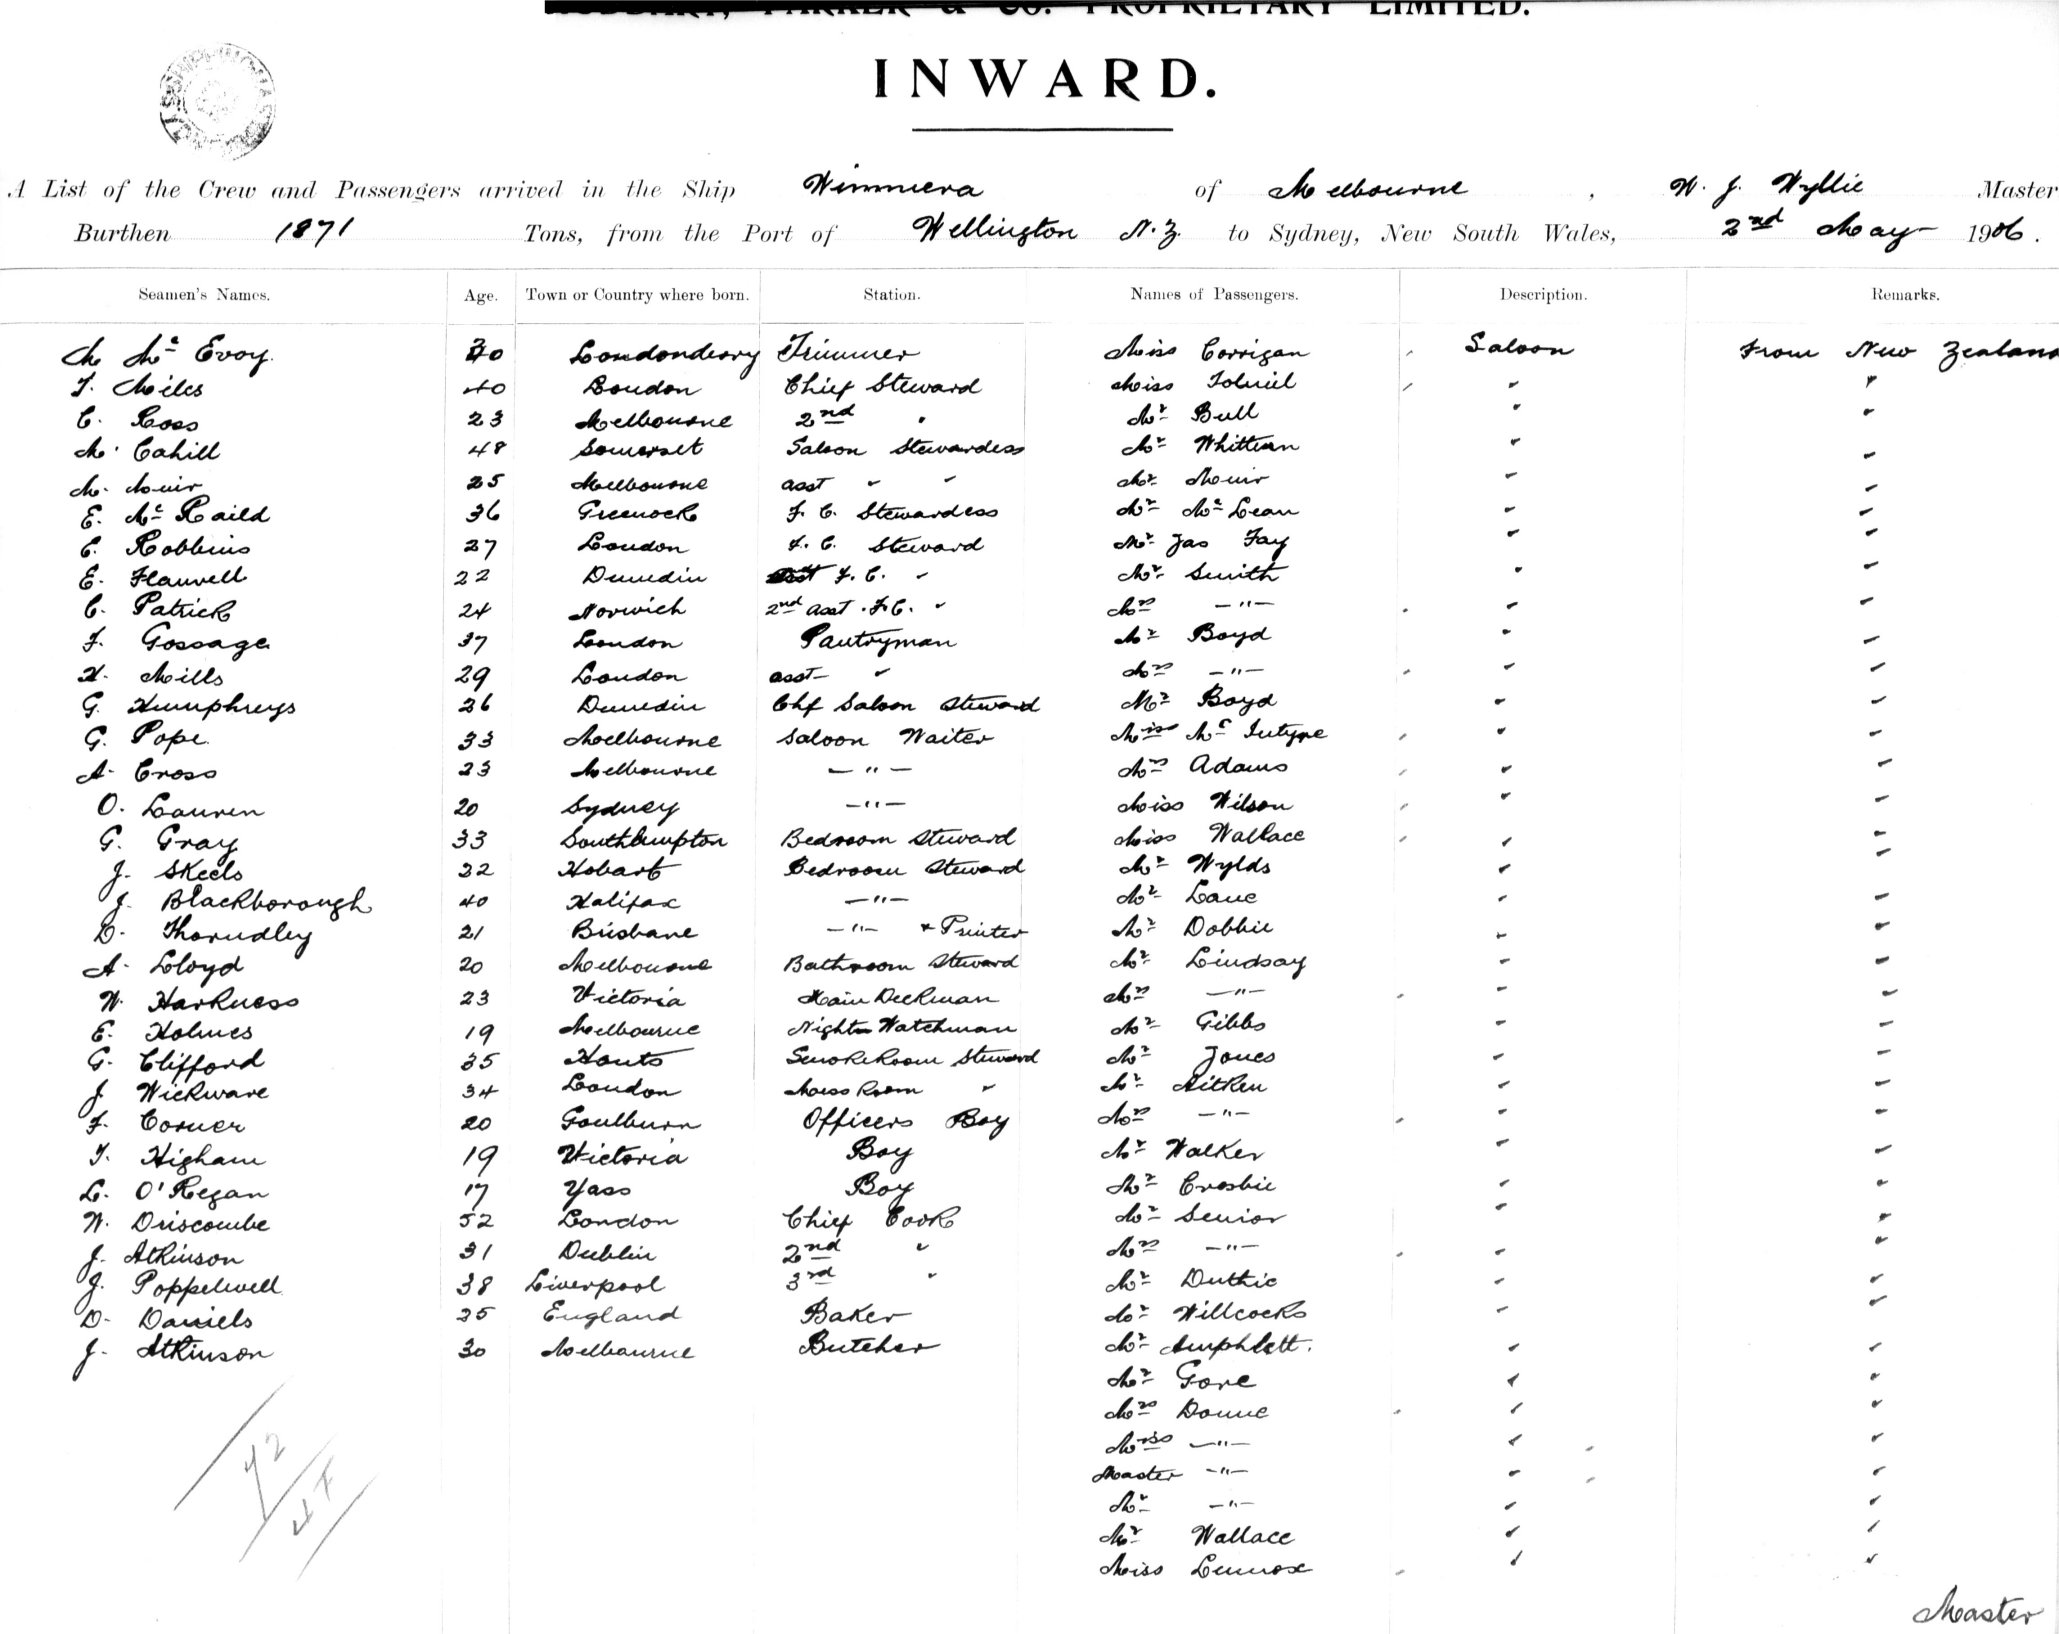 HUDDART, PARKER & CO. PROPRIETARY LIMITED.
INWARD.
A List of the Crew and Passengers arrived in the Ship Wimmera of Melbourne, W. J. Wyllie Master
Burthen 1871 Tons, from the Port of Wellington N.Z. to Sydney, New South Wales, 2nd May 1906.
Seamen's Names. Age. Town or Country where born. Station. Names of Passengers. Description. Remarks.
M Mc Evoy. 30 Londonderry Trimmer Miss Corrigan Saloon From New Zealand
T. Miles 40 London Chief Steward Miss
C. Ross 23 Melbourne 2nd " Mr Bull " "
M. Cahill 48 Somerset Saloon Stewardess Mr " "
M. Muir 25 Melbourne asst " " Mr Muir " "
E. Mc Raild 36 Greenock F. C. Stewardess Mr McLean " "
C. Robbins 27 London F. C. Steward Mr Jas Fay " "
E. Flauvell 22 Dunedin F. C. " Mr Smith " "
C. Patrick 24 Norwich 2nd asst. F.C. " Mrs —"— " "
F. Gossage 37 London Pantryman Mr Boyd " "
H. Mills 29 London asst— " Mrs —"— " "
G. Humphreys 26 Dunedin Chf Saloon Steward Mr Boyd " "
G. Pope 33 Melbourne Saloon Waiter Miss McIntyre " "
A. Cross 23 Melbourne —"— Mrs Adams " "
O. Lauren 20 Sydney —"— Miss Wilson " "
G. Gray 33 Southhampton Bedroom Steward Miss Wallace " "
J. Skeels 32 Hobart Bedroom Steward Mr Wylds " "
J. Blackborough 40 Halifax —"— Mr Lane " "
D. Thorndley 21 Brisbane —"— + Printer Mr Dobbie " "
A. Lloyd 20 Melbourne Bathroom Steward Mr Lindsay " "
W. Harkness 23 Victoria Main Deckman Mrs —"— " "
E. Holmes 19 Melbourne Night Watchman Mr Gibbs " "
G. Clifford 35 Hants Smoke Room Steward Mr Jones " "
J. Wickware 34 London Mess Room " Mr Aitken " "
F. Corner 20 Goulburn Officers Boy Mrs —"— " "
T. Higham 19 Victoria Boy Mr Walker " "
L. O'Regan 17 Yass Boy Mr Crosbie " "
W. Driscombe 52 London Chief Cook Mr Senior " "
J. Atkinson 31 Dublin 2nd " Mrs —"— " "
J. Poppelwell 38 Liverpool 3rd " Mr Duthie " "
D. Daniels 25 England Baker Mr Willcocks " "
J. Atkinson 30 Melbourne Butcher Mr Amphlett. " "
Mr Gore " "
Mrs Donne " "
Miss —"— " "
Master —"— " "
Mr —"— " "
Mr Wallace " "
Miss Lennox " "
Master